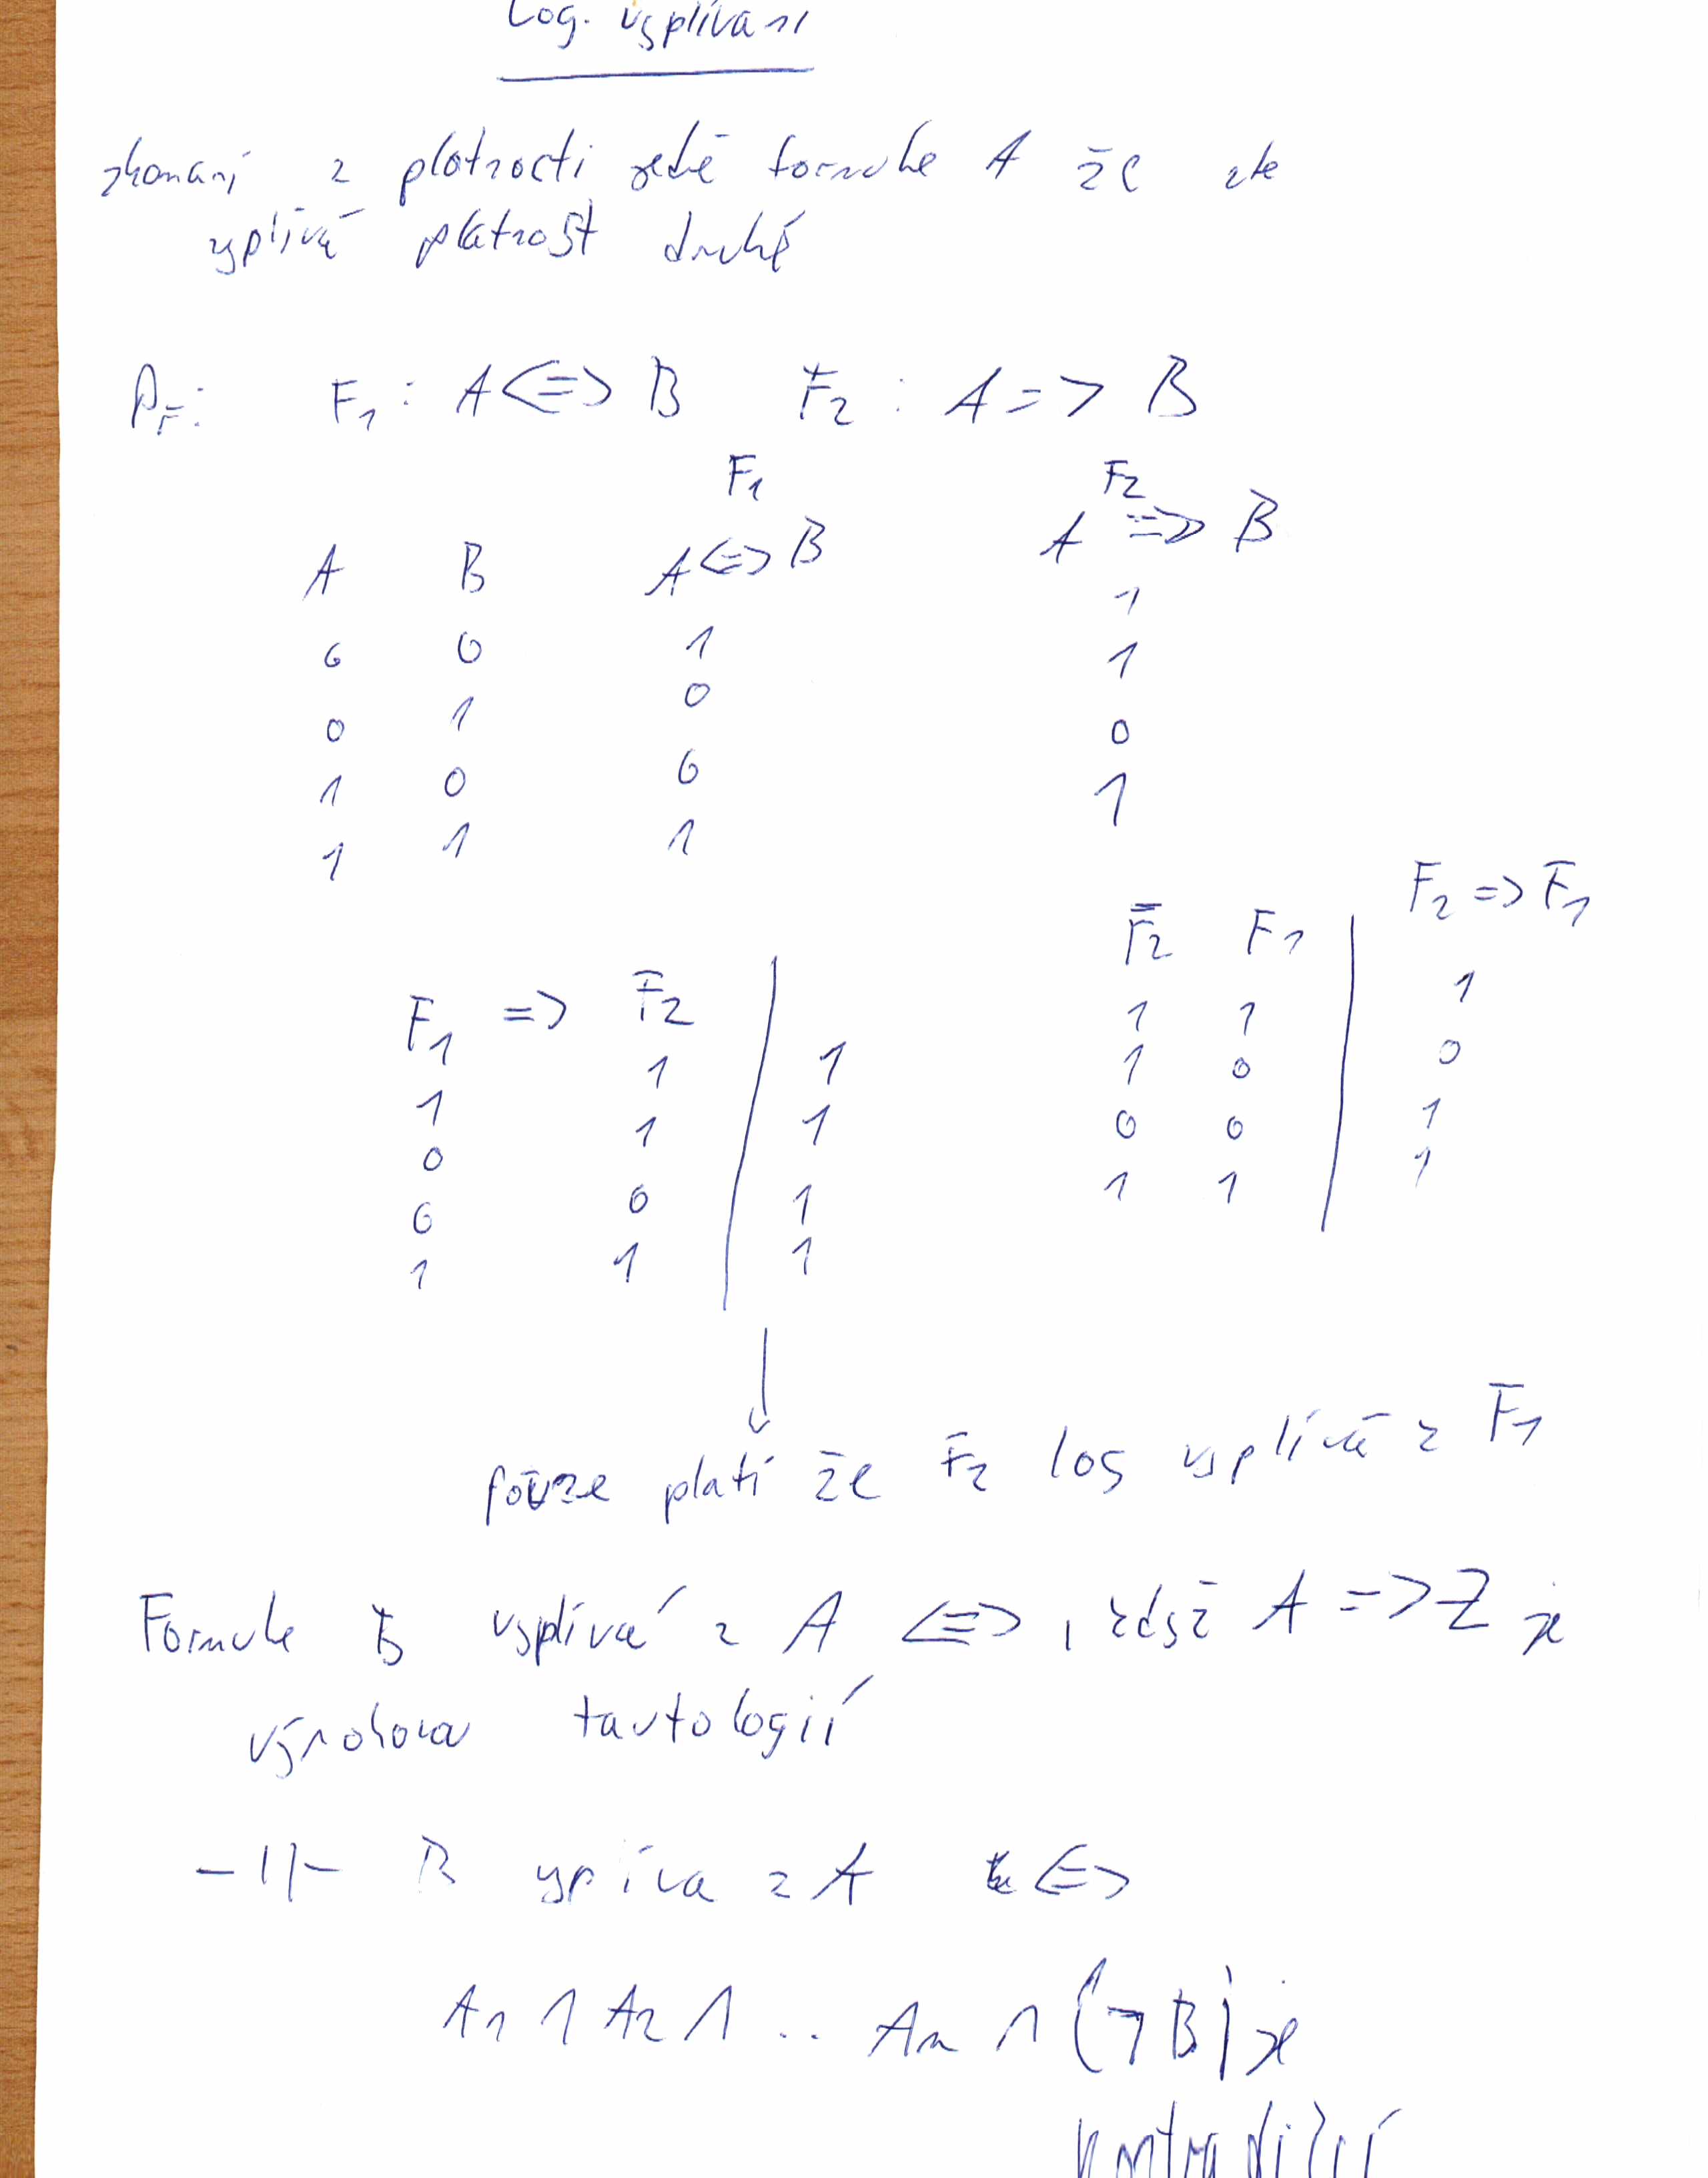 Log. vyplívání
zkoumání z platnosti jedné formule A že zde
vyplívá platnost druhé
Př: F1 : A <=> B F2 : A => B
F1 F2
A B A <=> B A => B
1
0 0 1 1
0 1 0 0
1 0 0 1
1 1 1
F2 F1 | F2 => F1
F1 => F2 |
1 1 | 1
1 0 | 0
0 0 | 1
1 1 | 1
1 1 | 1
0 1 | 1
0 0 | 1
1 1 | 1
↓
pouze platí že F2 log vyplívá z F1
Formule B vyplívá z A <=> , když A => Z je
výroková tautologií
-||- B vyplíva z A <=>
A1 ∧ A2 ∧ .. An ∧ (¬B) je
kontradikcí